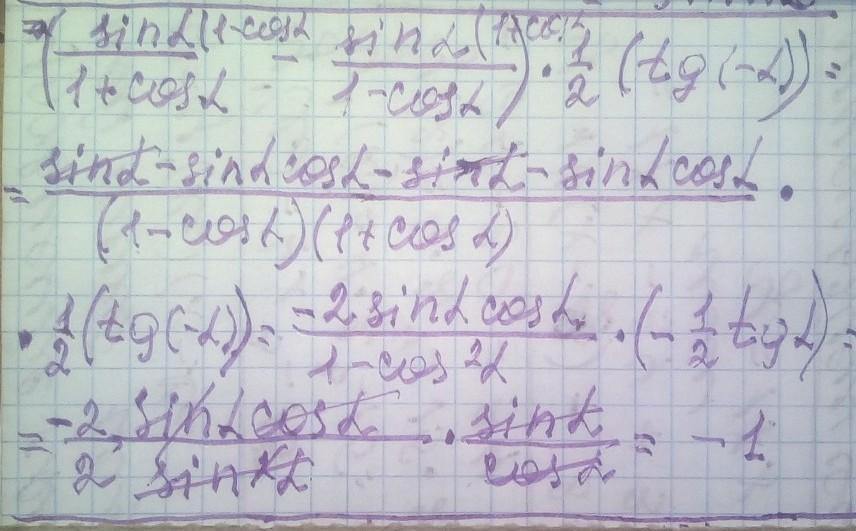 (sinα(1-cosα / 1+cosα - sinα(1+cosα / 1-cosα) · 1/2 (tg(-α)) =
= sinα - sinα cosα - sinα - sinα cosα / (1-cosα)(1+cosα) ·
· 1/2 (tg(-α)) = -2 sinα cosα / 1-cos²α · (-1/2 tgα) =
= -2 sinα cosα / 2 sin²α · sinα / cosα = -1